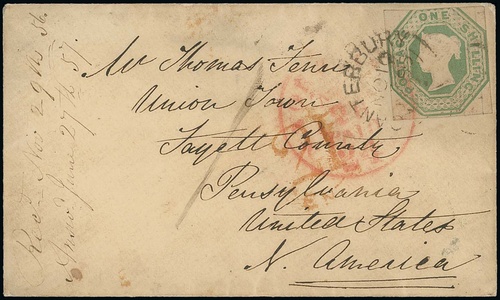 Mr Thomas Jenn
Union Town
Fayett County
Pensylvania
United States
N. America
Recd Nov 29th 56.
Answd June 27th 57.
ONE SHILLING
CANTERBURY